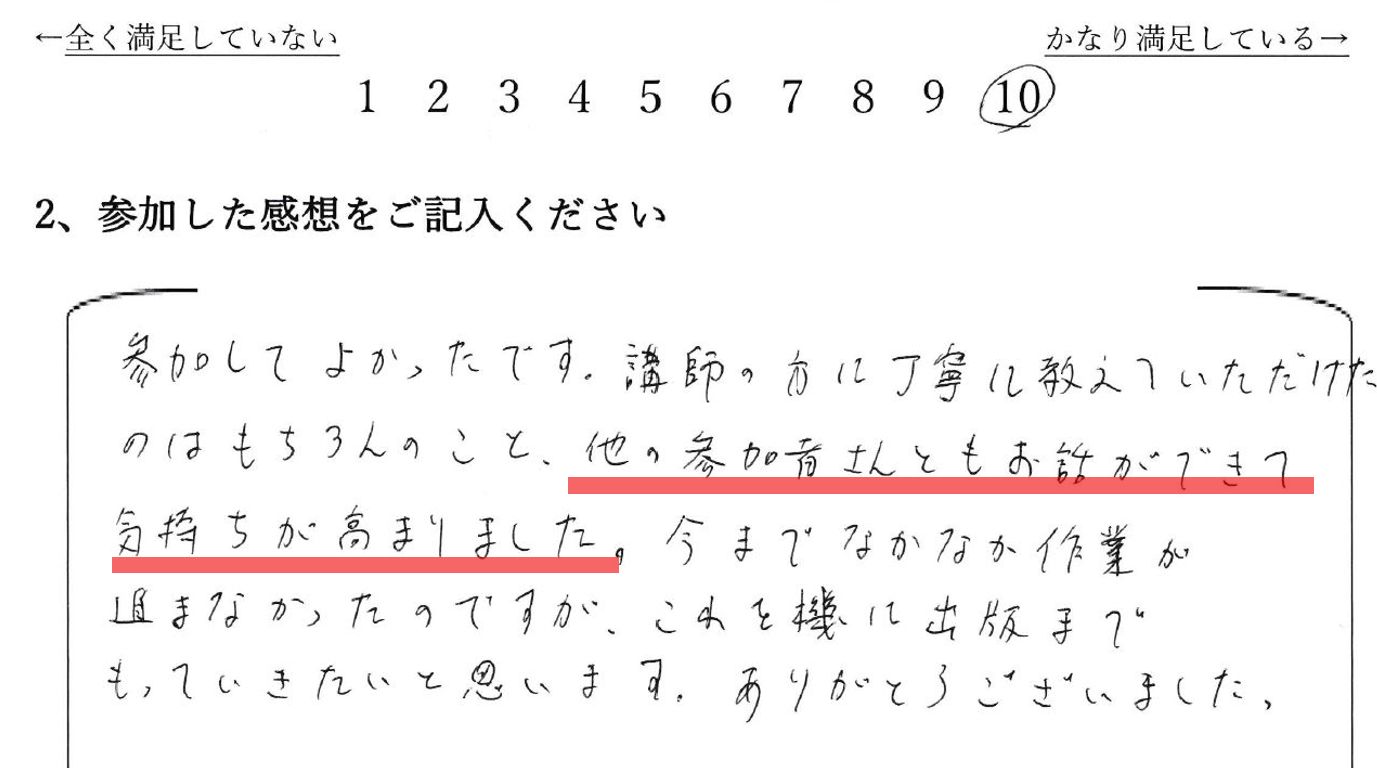 ←全く満足していない かなり満足している→
1 2 3 4 5 6 7 8 9 10
2、参加した感想をご記入ください
参加してよかったです。講師の方に丁寧に教えていただけた
のはもちろんのこと、他の参加者さんともお話ができて
気持ちが高まりました。今までなかなか作業が
進まなかったのですが、これを機に出版まで
もっていきたいと思います。ありがとうございました。